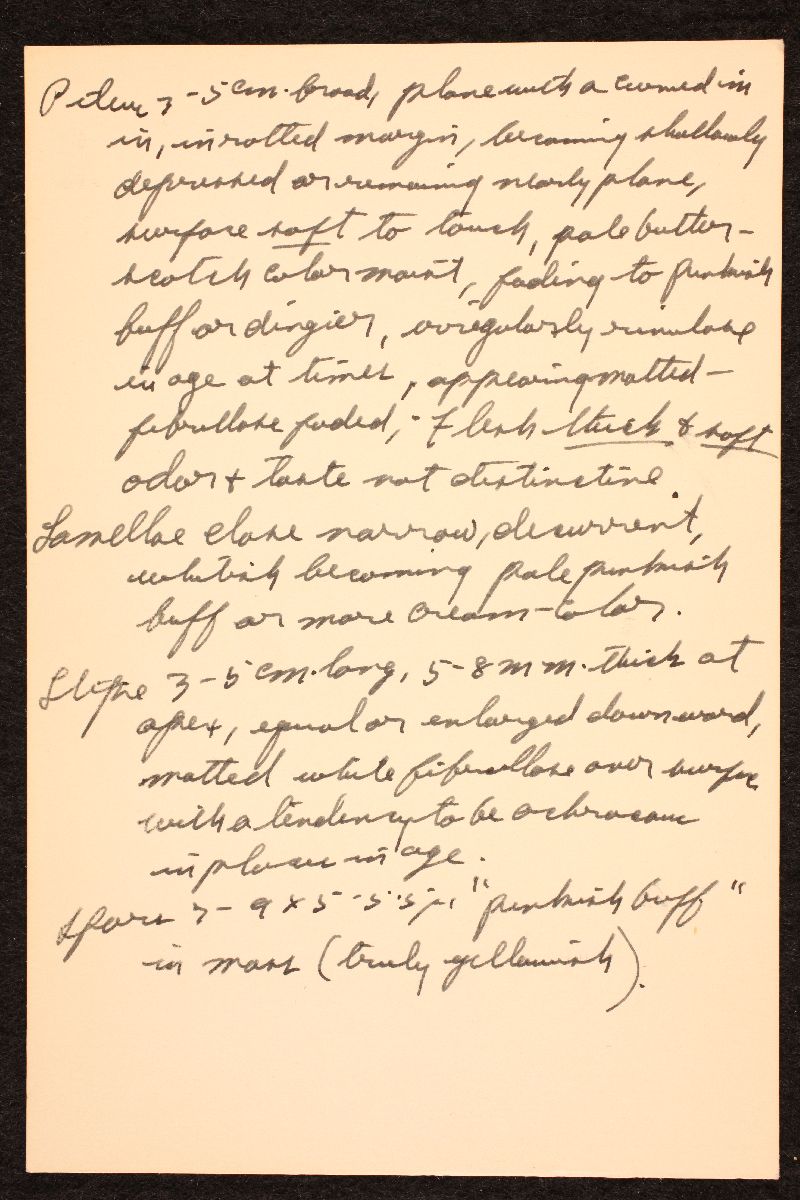 Pileus 3-5 cm. broad, plane with a curved in
in, inrolled margin, becoming shallowly
depressed or remaining nearly plane,
surface soft to touch, pale butter-
scotch color moist, fading to pinkish
buff or dingier, irregularly rimulose
in age at times, appearing matted-
fibrillose faded, - Flesh thick & soft
odor + taste not distinctive.
Lamellae close narrow, decurrent,
whitish becoming pale pinkish
buff or more cream-color.
Stipe 3-5 cm. long, 5-8 mm. thick at
apex, equal or enlarged downward,
matted white fibrillose over surface
with a tendency to be ochraceous
in places in age.
Spores 7-9 x 5-5.5 µ, "pinkish buff"
in mass (truly yellowish).